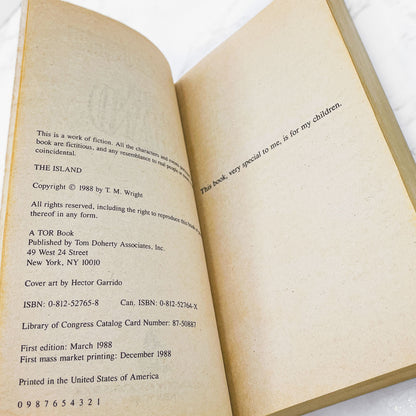 This is a work of fiction. All the characters and events
book are fictitious, and any resemblance to real people
coincidental.
THE ISLAND
Copyright © 1988 by T. M. Wright
All rights reserved, including the right to reproduce this book
thereof in any form.
A TOR Book
Published by Tom Doherty Associates, Inc.
49 West 24 Street
New York, NY 10010
Cover art by Hector Garrido
ISBN: 0-812-52765-8 Can. ISBN: 0-812-52764-X
Library of Congress Catalog Card Number: 87-50887
First edition: March 1988
First mass market printing: December 1988
Printed in the United States of America
0 9 8 7 6 5 4 3 2 1
This book, very special to me, is for my children.